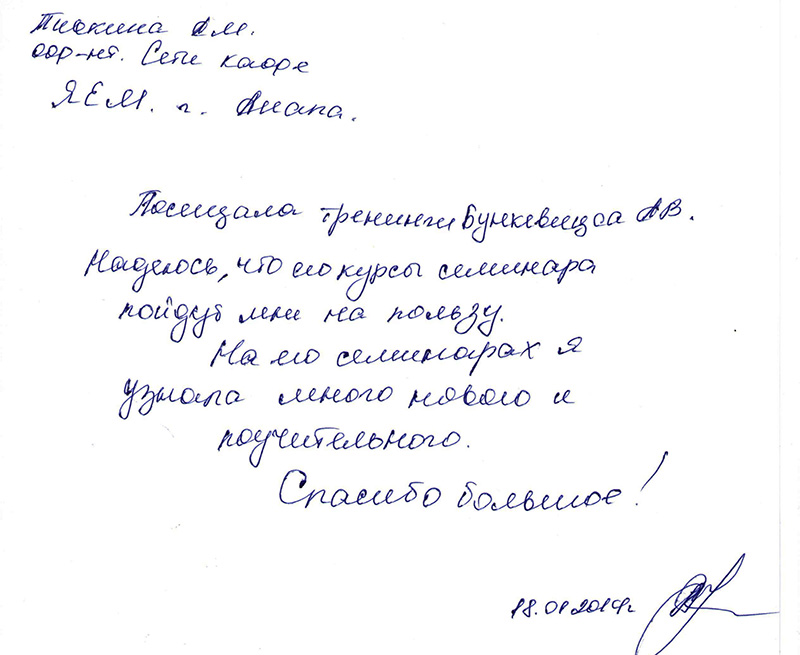 А.М.
Сети кафе
Я ЕМ. г. Анапа.
Посещала тренинги Бункевицса АВ.
Надеюсь, что его курсы семинара
пойдут мне на пользу.
На его семинарах я
узнала много нового и
поучительного.
Спасибо большое!
18.01.2019г